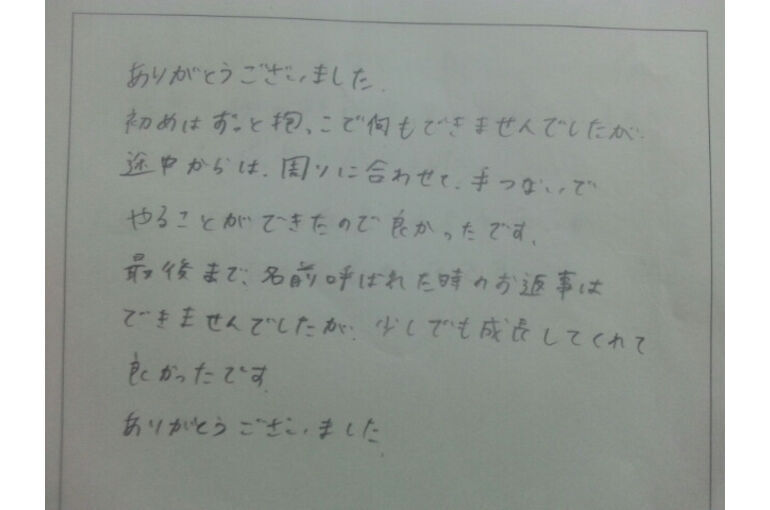 ありがとうございました。
初めはずっと抱っこで何もできませんでしたが、
途中からは、周りに合わせて、手つないで
やることができたので良かったです。
最後まで、名前呼ばれた時のお返事は
できませんでしたが、少しでも成長してくれて
良かったです。
ありがとうございました。